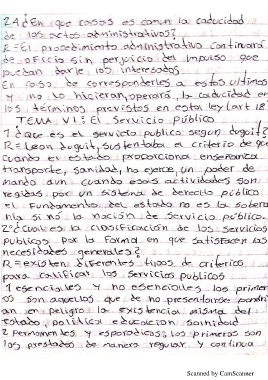 24¿En que casos es comun la caducidad
de los actos administrativos?
R=El procedimiento administrativo continuara
de oficio sin perjuicio del impulso que
puedan darle los interesados
En caso de corresponderles a estos ultimos
y no lo hicieran, operará la caducidad en
los términos previstos en esta ley (art 18)
TEMA VI: El Servicio público
1¿Que es el servicio publico segun doguit?
R=Leon Doguit, sustentaba el criterio de que
cuando el estado proporciona enseñanza
transporte, sanidad, no ejerce, un poder de
mando aun cuando esas actividades son
regidas por un sistema de derecho público
el Fundamento del estado no es la sobera
nia si no la noción de servicio público.
2¿Cual es la clasificación de los servicios
publicos por la forma en que satisfacen las
necesidades generales?
R=existen diferentes tipos de criterios
para calificar los servicios publicos
1 esenciales y no esenciales los primer
os son aquellos que de no presentarse pondri
an en peligro la existencia misma del
Estado, politica educacion sanidad
2 Permanentes y esporadicos; los primeros son
los prestados de manera regular y continua
Scanned by CamScanner